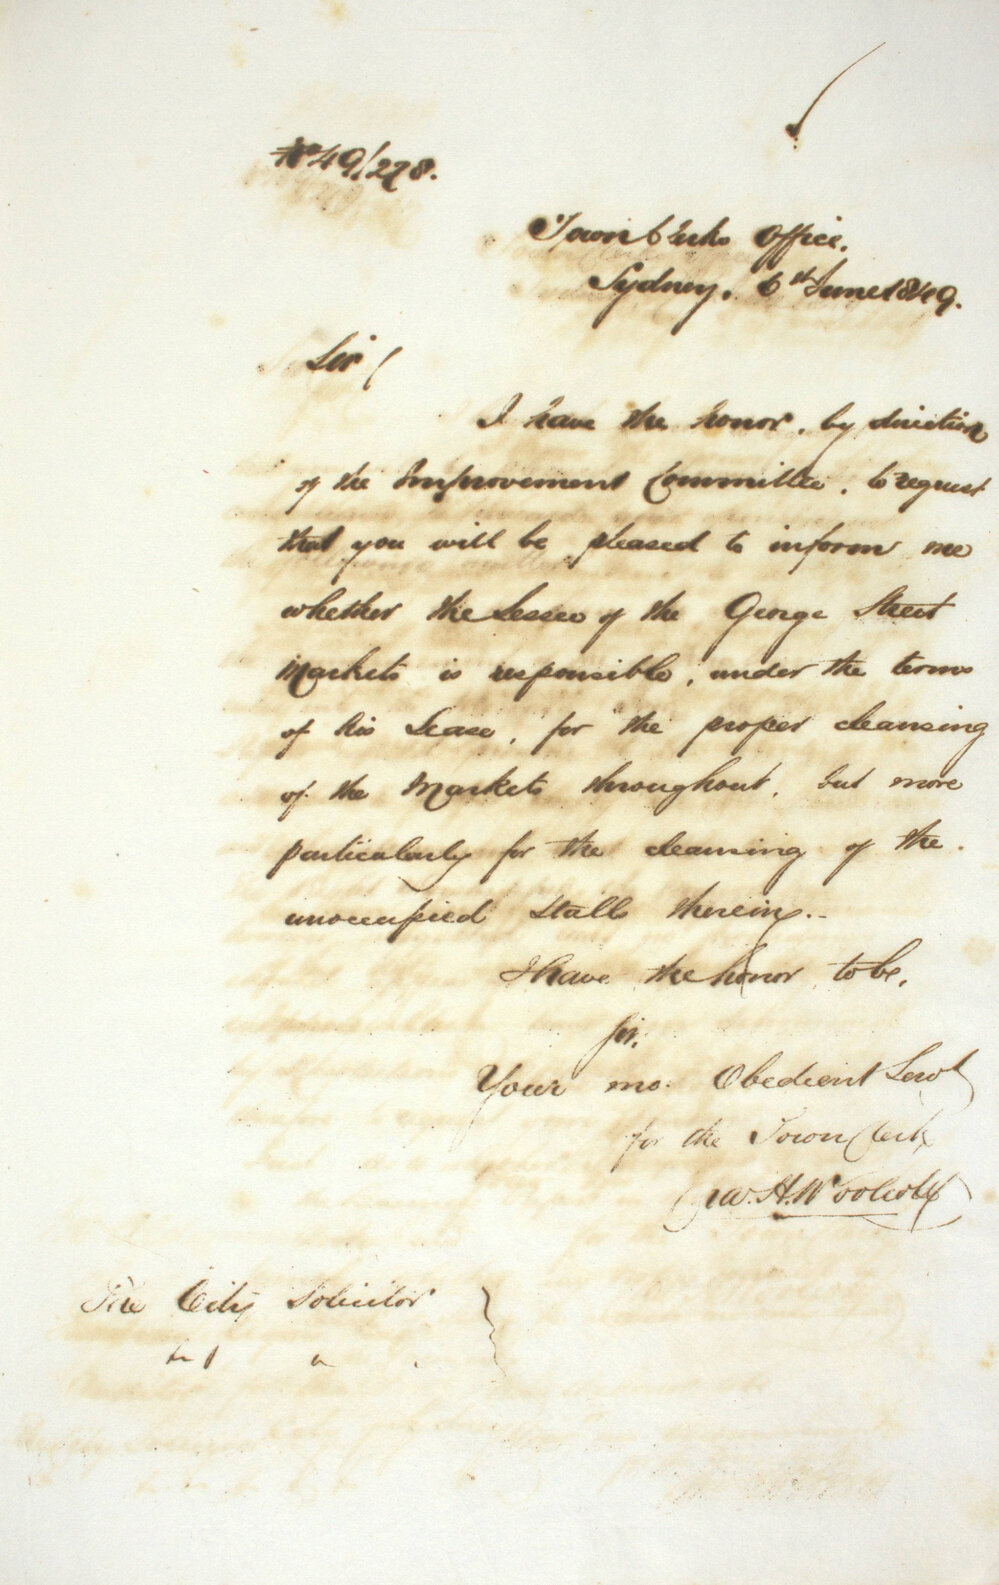 No 49/278.
Town Clerks Office.
Sydney, 6th June 1849.
Sir
I have the honor, by direction
of the Improvement Committee, to request
that you will be pleased to inform me
whether the Lessee of the George Street
Markets is responsible, under the terms
of his Lease, for the proper cleansing
of the Markets throughout, but more
particularly for the cleansing of the
unoccupied Stalls therein.
I have the honor to be,
Sir,
Your mo. Obedient Servt
for the Town Clerk
W. H. Woolcott
The City Solicitor